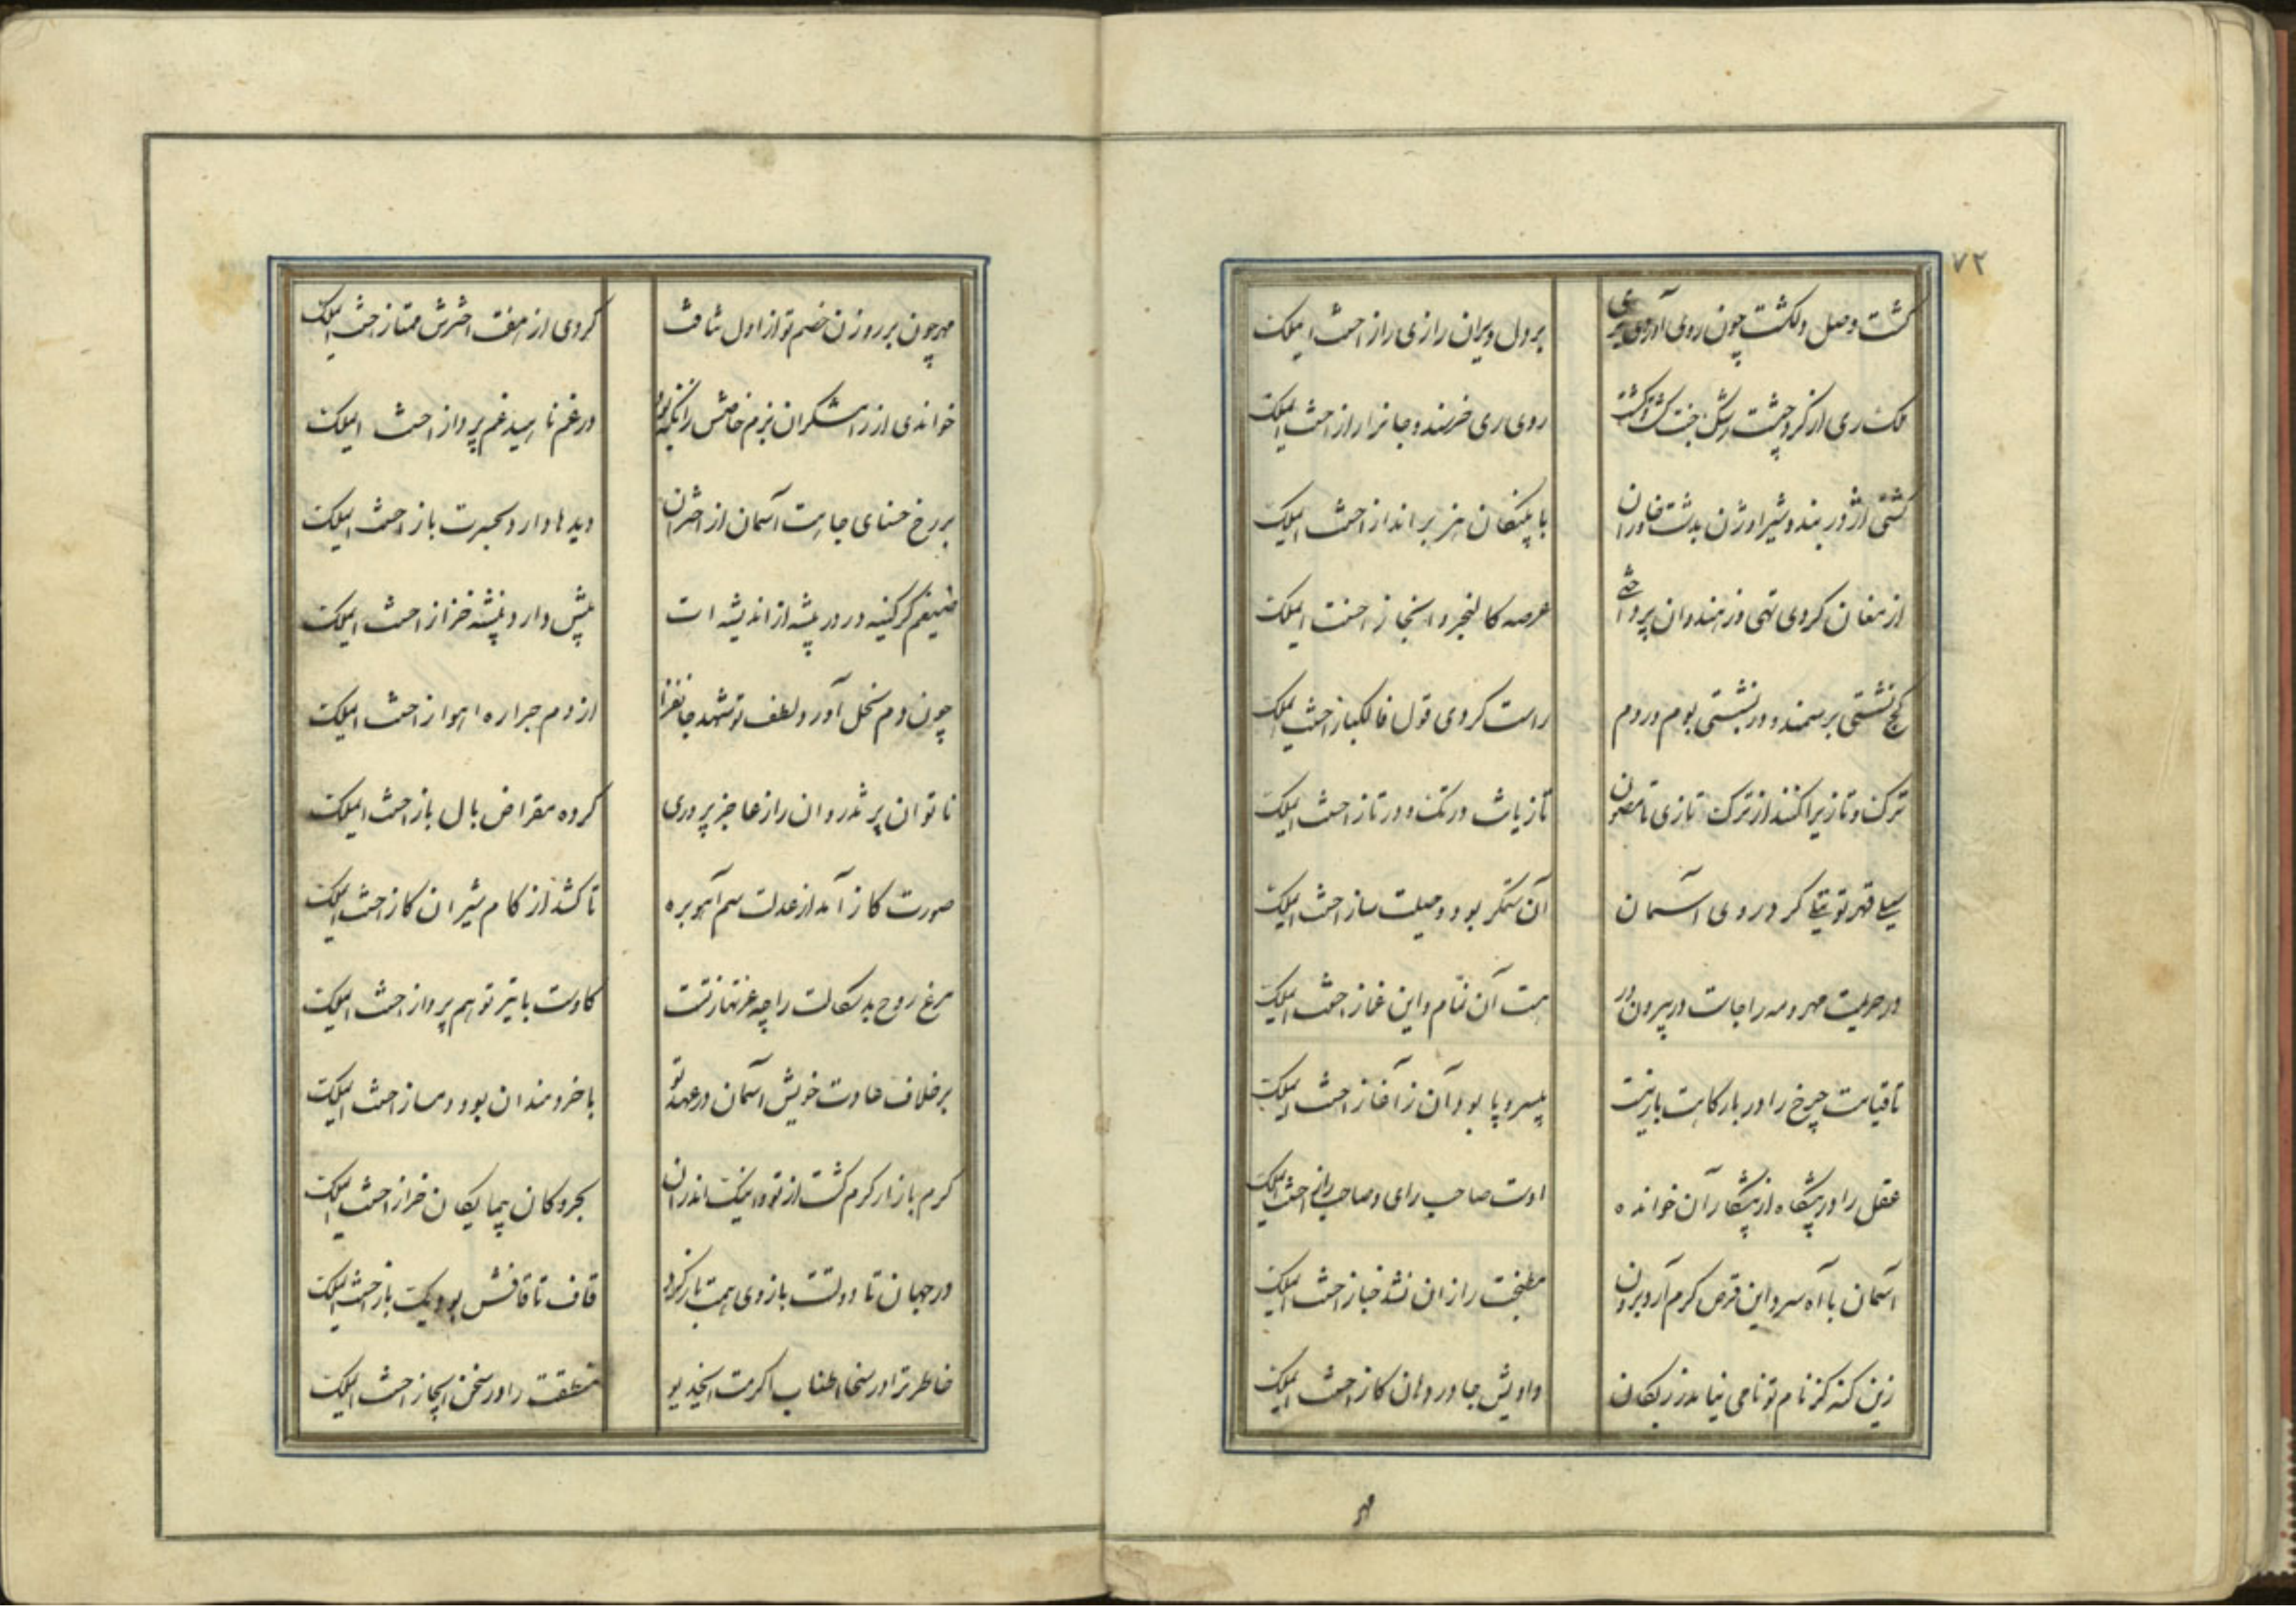 ۷۲
گشت وصل دلکشت چون روی آوری
بر دل ویران رازی راز احسنت ای ملک
ملک ری از گرد چشت رشک جنت گشت
روی ری خرسند و جانراراز احسنت ای ملک
کشتی اژدر بند و شیر اوژن بدشت خاوران
با پلنگان هنربر انداز احسنت ای ملک
از مغان کردی تهی وز هندوان پرداختی
عرصه کالنجر و ابخاز احسنت ای ملک
کج نشستی بر سمند و در نشستی بوم و روم
راست کردی قول فالگباز احسنت ای ملک
ترک و تازیرا کنند از ترک تازی تا مصون
تازیات در تک و در تاز احسنت ای ملک
سیلی قهر تو نیلی کرد روی آسمان
آن ستمگر بود و حیلت ساز احسنت ای ملک
در حریمت مهر و مه را جاست در بیرون در
هست آن نمام و این غماز احسنت ای ملک
تا قیامت چرخ را در بارگاهت بار نیست
بیسر و پا بود آن ز آغاز احسنت ای ملک
عقل را در پیشگاه از پیشکاران خوانده
اوست صاحب رای و صاحب راز احسنت ای ملک
آسمان با آه سرد این قرص گرم آرد برون
مطبخت را زان نشد خباز احسنت ای ملک
زین گنه کز نام تو نامی نیامد بر زبان
دادیش جا در دهان گاز احسنت ای ملک
مهر
مهر چون بر روزن خصم تو از اول نتافت
کردی از هفت اخترش ممتاز احسنت ای ملک
خواندی از رامشگران بزم خاصش زانکه بود
در غم ناهید غم پرداز احسنت ای ملک
بر رخ حسنای جاهت آسمان از اختران
دیدها دارد بحیرت باز احسنت ای ملک
ضیغم گر کینه ور در بیشه از اندیشه ات
پیش دارد پیشه خراز احسنت ای ملک
چون دم نحل آورد لطف تو شهد جانفزا
از دم جراره اهواز احسنت ای ملک
ناتوان پر تذروان را ز عاجز پروری
کرده مقراض بال باز احسنت ای ملک
صورت گاز آمد از عدلت سم آهو بره
تا کشد از کام شیران گاز احسنت ای ملک
مرغ روح بدسگالت را چه عزتها ز تست
کاوست با تیر تو هم پرواز احسنت ای ملک
بر خلاف عادت خویش آسمان در عهد تو
با خردمندان بود دمساز احسنت ای ملک
گرم بازار کرم گشت از تو و اینک اندران
بحر و کان بیمایگان خراز احسنت ای ملک
در جهان تا دولتت بازوی همت باز کرد
قاف تا قافش بود یک باز احسنت ای ملک
خاطر ترا در سخا اطناب اکرمت ایخدیو
منطقت را در سخن ایجاز احسنت ای ملک